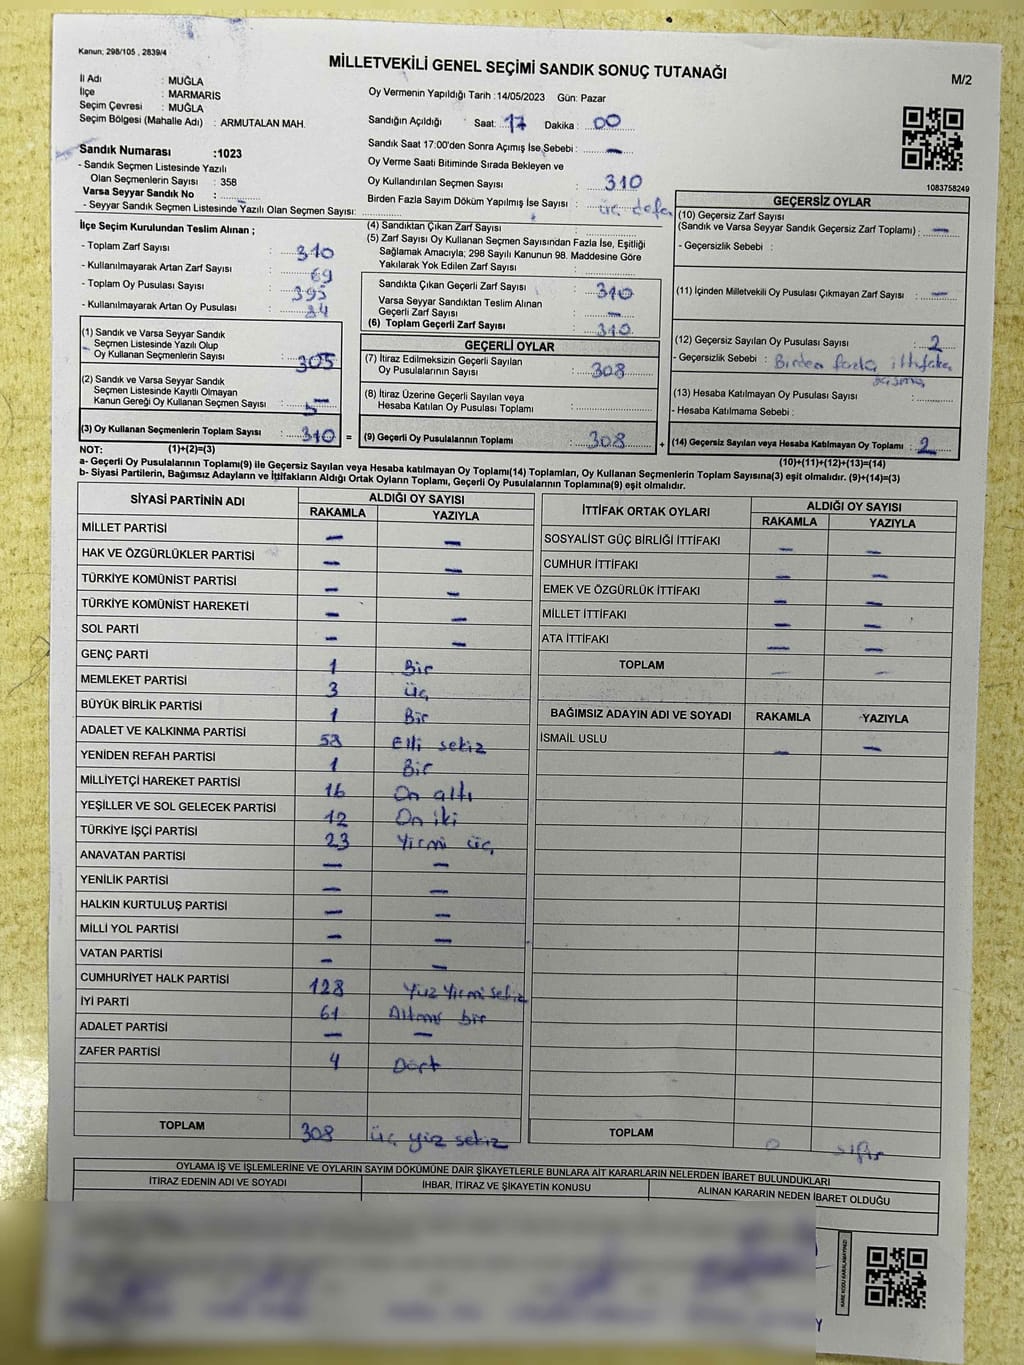 Kanun; 298/105 , 2839/4
MİLLETVEKİLİ GENEL SEÇİMİ SANDIK SONUÇ TUTANAĞI
M/2
İl Adı : MUĞLA
İlçe : MARMARIS
Seçim Çevresi : MUĞLA
Seçim Bölgesi (Mahalle Adı) : ARMUTALAN MAH.
Oy Vermenin Yapıldığı Tarih :14/05/2023 Gün: Pazar
Sandığın Açıldığı Saat: 17 Dakika : 00
Sandık Saat 17:00'den Sonra Açımış İse Sebebi : —
Oy Verme Saati Bitiminde Sırada Bekleyen ve
Oy Kullandırılan Seçmen Sayısı : 310
Birden Fazla Sayım Döküm Yapılmış İse Sayısı : üç defa
1083758249
Sandık Numarası :1023
- Sandık Seçmen Listesinde Yazılı
Olan Seçmenlerin Sayısı : 358
Varsa Seyyar Sandık No :
- Seyyar Sandık Seçmen Listesinde Yazılı Olan Seçmen Sayısı:
İlçe Seçim Kurulundan Teslim Alınan ;
- Toplam Zarf Sayısı : 310
- Kullanılmayarak Artan Zarf Sayısı : 69
- Toplam Oy Pusulası Sayısı : 395
- Kullanılmayarak Artan Oy Pusulası : 84
(1) Sandık ve Varsa Seyyar Sandık
Seçmen Listesinde Yazılı Olup
Oy Kullanan Seçmenlerin Sayısı : 305
(2) Sandık ve Varsa Seyyar Sandık
Seçmen Listesinde Kayıtlı Olmayan
Kanun Gereği Oy Kullanan Seçmen Sayısı : 5
(3) Oy Kullanan Seçmenlerin Toplam Sayısı : 310 =
(1)+(2)=(3)
(4) Sandıktan Çıkan Zarf Sayısı :
(5) Zarf Sayısı Oy Kullanan Seçmen Sayısından Fazla İse, Eşitliği
Sağlamak Amacıyla; 298 Sayılı Kanunun 98. Maddesine Göre
Yakılarak Yok Edilen Zarf Sayısı :
Sandıkta Çıkan Geçerli Zarf Sayısı : 310
Varsa Seyyar Sandıktan Teslim Alınan
Geçerli Zarf Sayısı : —
(6) Toplam Geçerli Zarf Sayısı : 310
GEÇERLİ OYLAR
(7) İtiraz Edilmeksizin Geçerli Sayılan
Oy Pusulalarının Sayısı : 308
(8) İtiraz Üzerine Geçerli Sayılan veya
Hesaba Katılan Oy Pusulası Toplamı :
(9) Geçerli Oy Pusulalarının Toplamı : 308 +
GEÇERSİZ OYLAR
(10) Geçersiz Zarf Sayısı
(Sandık ve Varsa Seyyar Sandık Geçersiz Zarf Toplamı) : —
- Geçersizlik Sebebi :
(11) İçinden Milletvekili Oy Pusulası Çıkmayan Zarf Sayısı : —
(12) Geçersiz Sayılan Oy Pusulası Sayısı : 2
- Geçersizlik Sebebi : Birden fazla ittifaka
basma
(13) Hesaba Katılmayan Oy Pusulası Sayısı :
- Hesaba Katılmama Sebebi :
(14) Geçersiz Sayılan veya Hesaba Katılmayan Oy Toplamı : 2
(10)+(11)+(12)+(13)=(14)
NOT:
a- Geçerli Oy Pusulalarının Toplamı(9) ile Geçersiz Sayılan veya Hesaba katılmayan Oy Toplamı(14) Toplamları, Oy Kullanan Seçmenlerin Toplam Sayısına(3) eşit olmalıdır. (9)+(14)=(3)
b- Siyasi Partilerin, Bağımsız Adayların ve İttifakların Aldığı Ortak Oyların Toplamı, Geçerli Oy Pusulalarının Toplamına(9) eşit olmalıdır.
SİYASİ PARTİNİN ADI ALDIĞI OY SAYISI
RAKAMLA YAZIYLA
MİLLET PARTİSİ — —
HAK VE ÖZGÜRLÜKLER PARTİSİ — —
TÜRKİYE KOMÜNİST PARTİSİ — —
TÜRKİYE KOMÜNİST HAREKETİ — —
SOL PARTİ — —
GENÇ PARTİ 1 Bir
MEMLEKET PARTİSİ 3 üç
BÜYÜK BİRLİK PARTİSİ 1 Bir
ADALET VE KALKINMA PARTİSİ 58 Elli sekiz
YENİDEN REFAH PARTİSİ 1 Bir
MİLLİYETÇİ HAREKET PARTİSİ 16 On altı
YEŞİLLER VE SOL GELECEK PARTİSİ 12 On iki
TÜRKİYE İŞÇİ PARTİSİ 23 Yirmi üç
ANAVATAN PARTİSİ — —
YENİLİK PARTİSİ — —
HALKIN KURTULUŞ PARTİSİ — —
MİLLİ YOL PARTİSİ — —
VATAN PARTİSİ — —
CUMHURİYET HALK PARTİSİ 128 Yüz Yirmi sekiz
İYİ PARTİ 61 Altmış bir
ADALET PARTİSİ — —
ZAFER PARTİSİ 4 Dört
TOPLAM 308 üç yüz sekiz
İTTİFAK ORTAK OYLARI ALDIĞI OY SAYISI
RAKAMLA YAZIYLA
SOSYALİST GÜÇ BİRLİĞİ İTTİFAKI — —
CUMHUR İTTİFAKI — —
EMEK VE ÖZGÜRLÜK İTTİFAKI — —
MİLLET İTTİFAKI — —
ATA İTTİFAKI — —
TOPLAM — —
BAĞIMSIZ ADAYIN ADI VE SOYADI RAKAMLA YAZIYLA
İSMAİL USLU — —
TOPLAM 0 sıfır
OYLAMA İŞ VE İŞLEMLERİNE VE OYLARIN SAYIM DÖKÜMÜNE DAİR ŞİKAYETLERLE BUNLARA AİT KARARLARIN NELERDEN İBARET BULUNDUKLARI
İTİRAZ EDENİN ADI VE SOYADI İHBAR, İTİRAZ VE ŞİKAYETİN KONUSU ALINAN KARARIN NEDEN İBARET OLDUĞU
KARE KODU KARALAMAYINIZ!